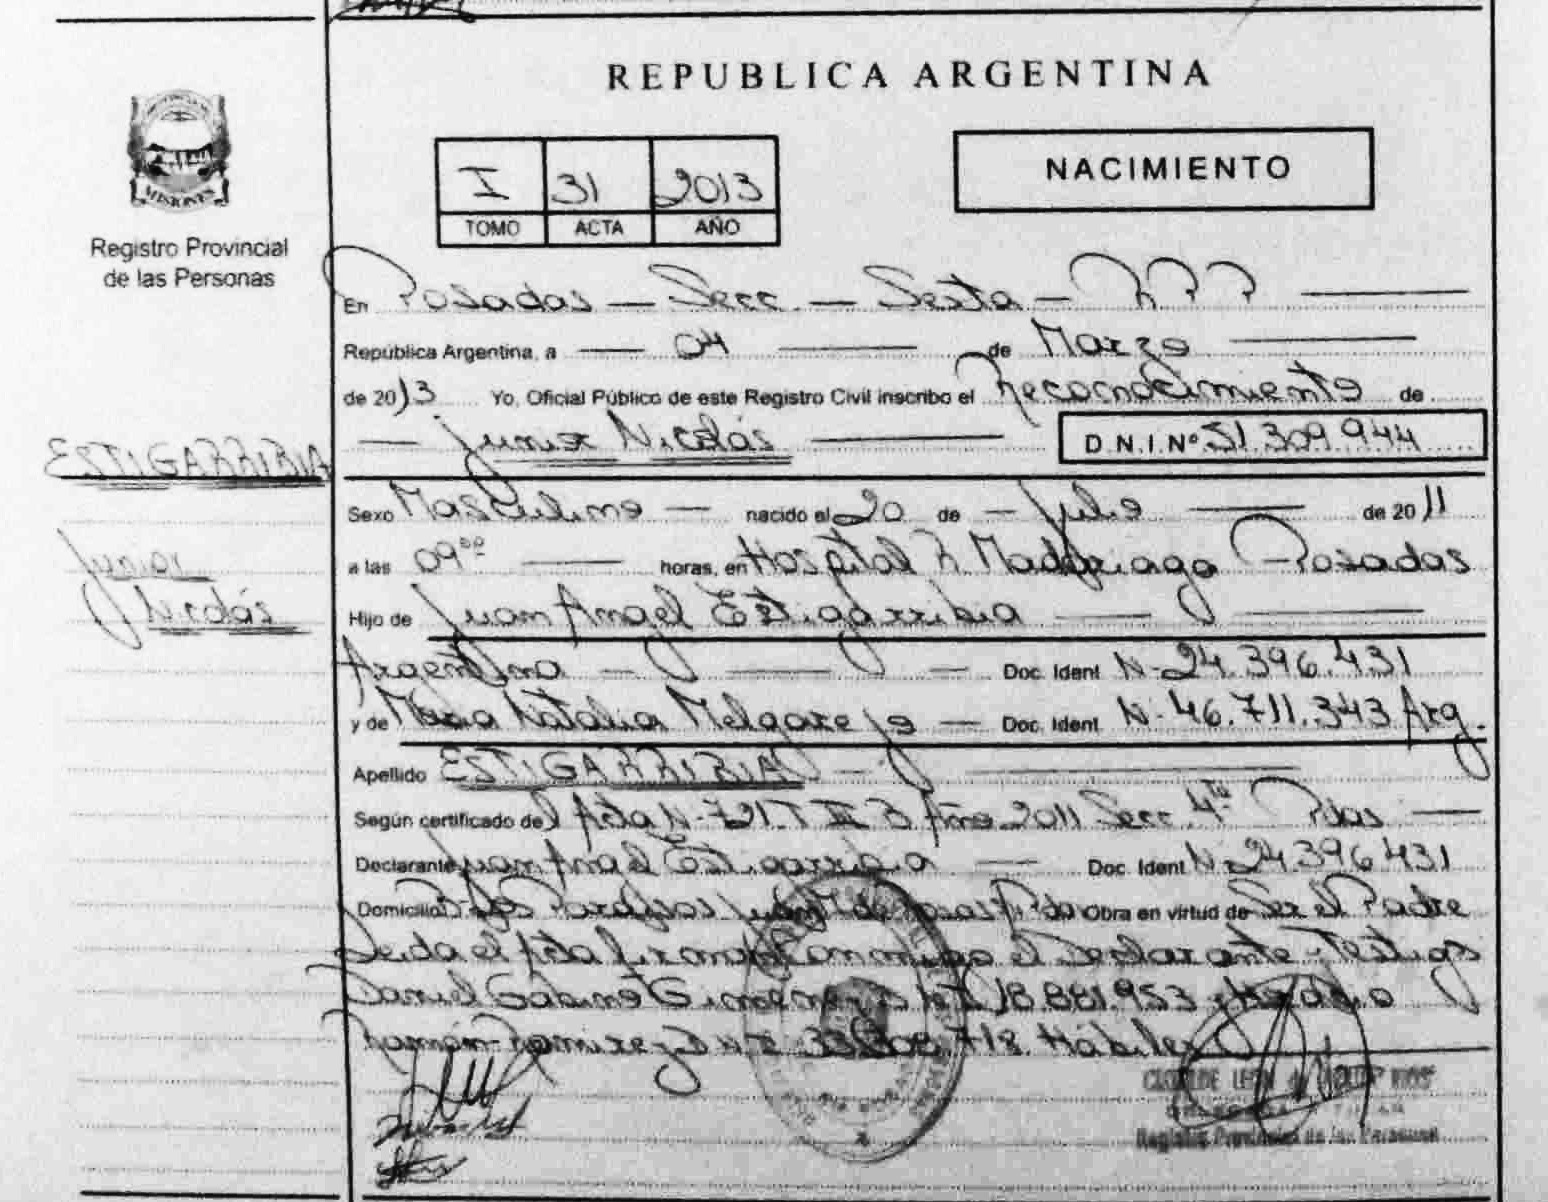 REPUBLICA ARGENTINA
I 31 2013
TOMO ACTA AÑO
NACIMIENTO
MISIONES
Registro Provincial
de las Personas
En Posadas — Secc. — Sexta — R P P
República Argentina, a — 04 — de Marzo
de 2013 Yo, Oficial Público de este Registro Civil inscribo el Reconocimiento de
— Junior Nicolás — D.N.I.Nº 51.309.944
ESTIGARRIBIA
Junior
Nicolás
Sexo Masculino — nacido el 20 de — Julio — de 2011
a las 09⁰⁰ — horas, en Hospital R Madariaga - Posadas
Hijo de Juan Angel Estigarribia —
Argentino — Doc. Ident N- 24.396.431
y de Maria Natalia Melgarejo — Doc. Ident N- 46.711.343 Arg.
Apellido ESTIGARRIBIA —
Según certificado del Acta N- 721 T III Año 2011 Secc. 4ta Pdas —
Declarante Juan Angel Estigarribia — Doc. Ident N- 24.396.431
Domicilio Obra en virtud de Ser el Padre
Leida el Acta firman conmigo el Declarante - Testigos
Daniel Gabino Gimenez 18.881.953
Ramón Ramirez 718. Hábiles
Registro Provincial de las Personas